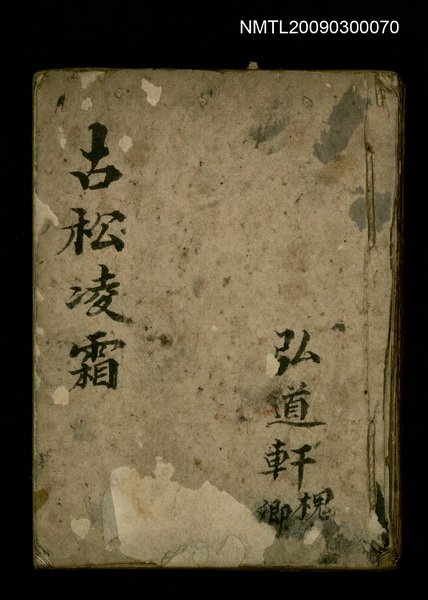 NMTL20090300070
古松凌霜
弘道軒
槐卿